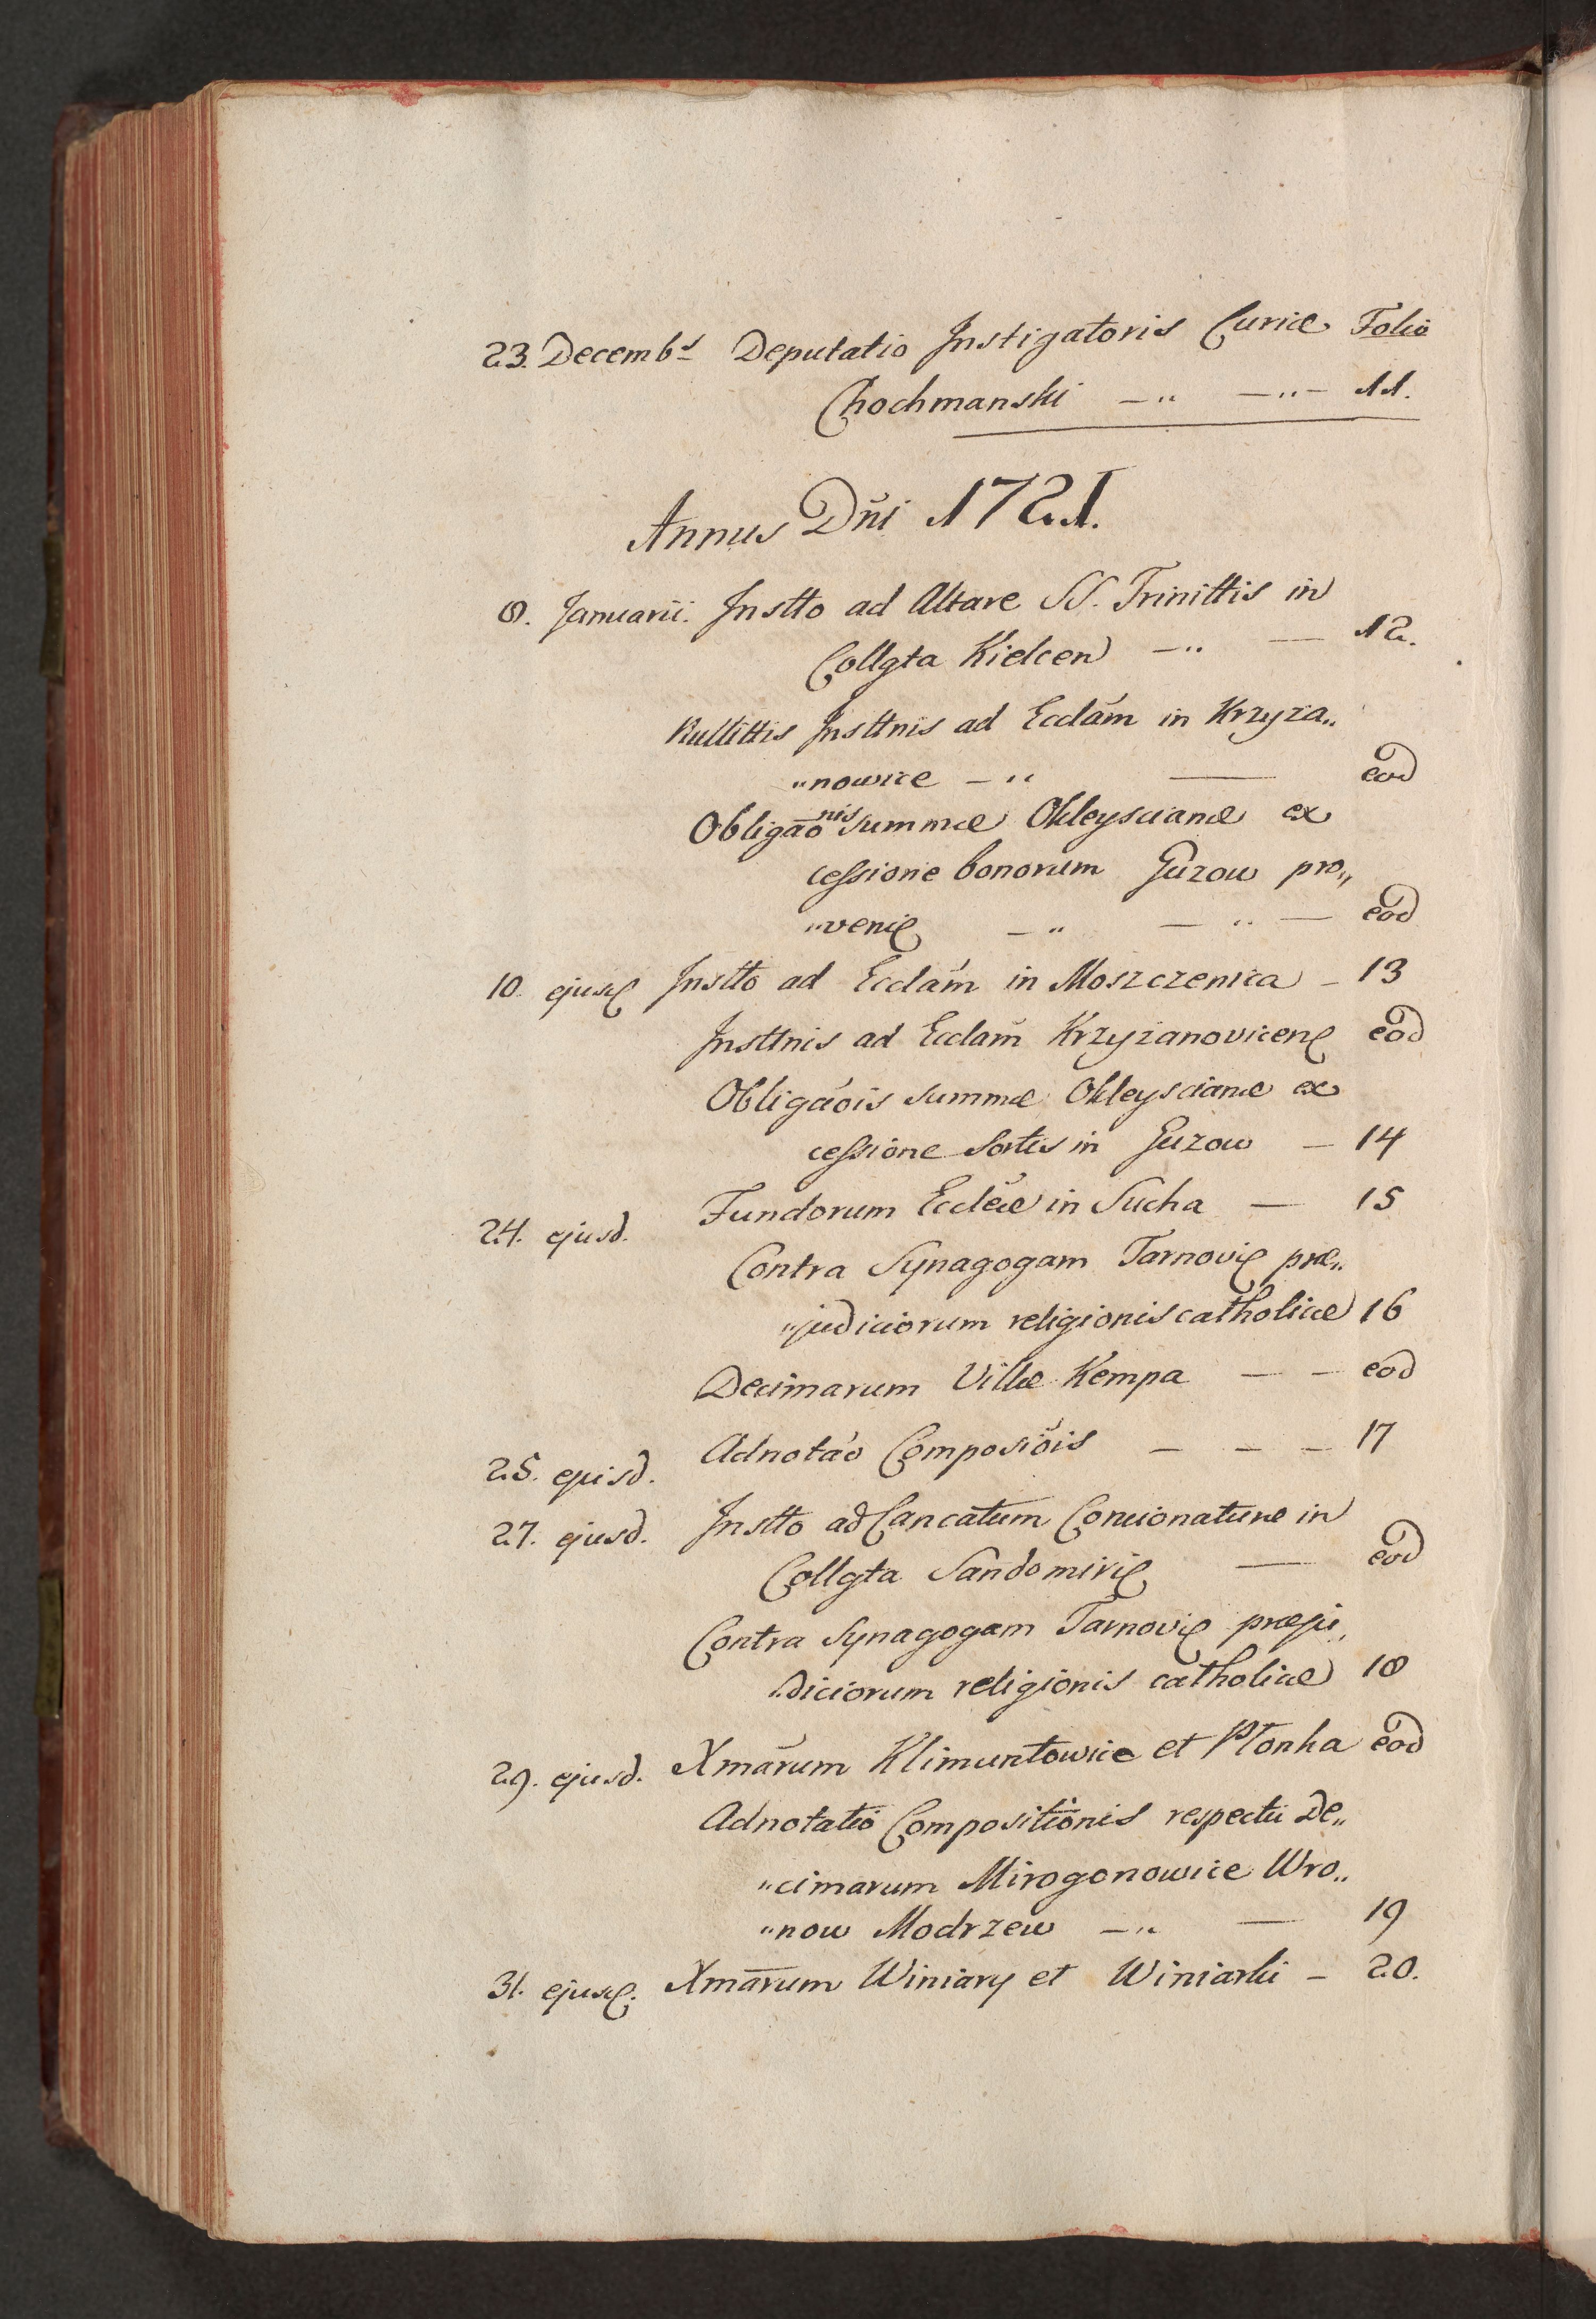 23. Decembs Deputatio Instigatoris Curiæ Folio
Chochmanski —" —"— 11.
Annus Dñi 1721.
8. Januarii. Instto ad Altare SS. Trinittis in
Collgta Kielcen —" — 12.
Nullittis Insttnis ad Ecclám in Krzyża„
„nowice —" — eod
Obligaõnis summæ Okleysciane ex
cessione bonorum Guzow pro„
„venię —" — " — eod
10. ejusd Instto ad Ecclám in Moszczenica — 13
Insttnis ad Ecclam̃ Krzyżanovicen eod
Obligaóis summæ Okleysciane ex
cessione Sortis in Guzow — 14
24. ejusd. Fundorum Eccleæ in Sucha — 15
Contra Synagogam Tarnovię præ„
„judiciorum religionis catholicæ 16
Decimarum Villæ Kempa — — eod
25. ejusd. Adnotáo Composiõis — — — 17
27. ejusd. Instto ad Cancatum Concionaturæ in
Collgta Sandomirię — eod
Contra Synagogam Tarnovię præju„
„diciorum religionis catholicæ 18
29. ejusd. Xmãrum Klimuntowice et Płonka eod
Adnotatio Compositionis respectu De„
„cimarum Mirogonowice Wro„
„now Modrzew —" — 19
31. ejusd. Xmārum Winiary et Winiarki — 20.